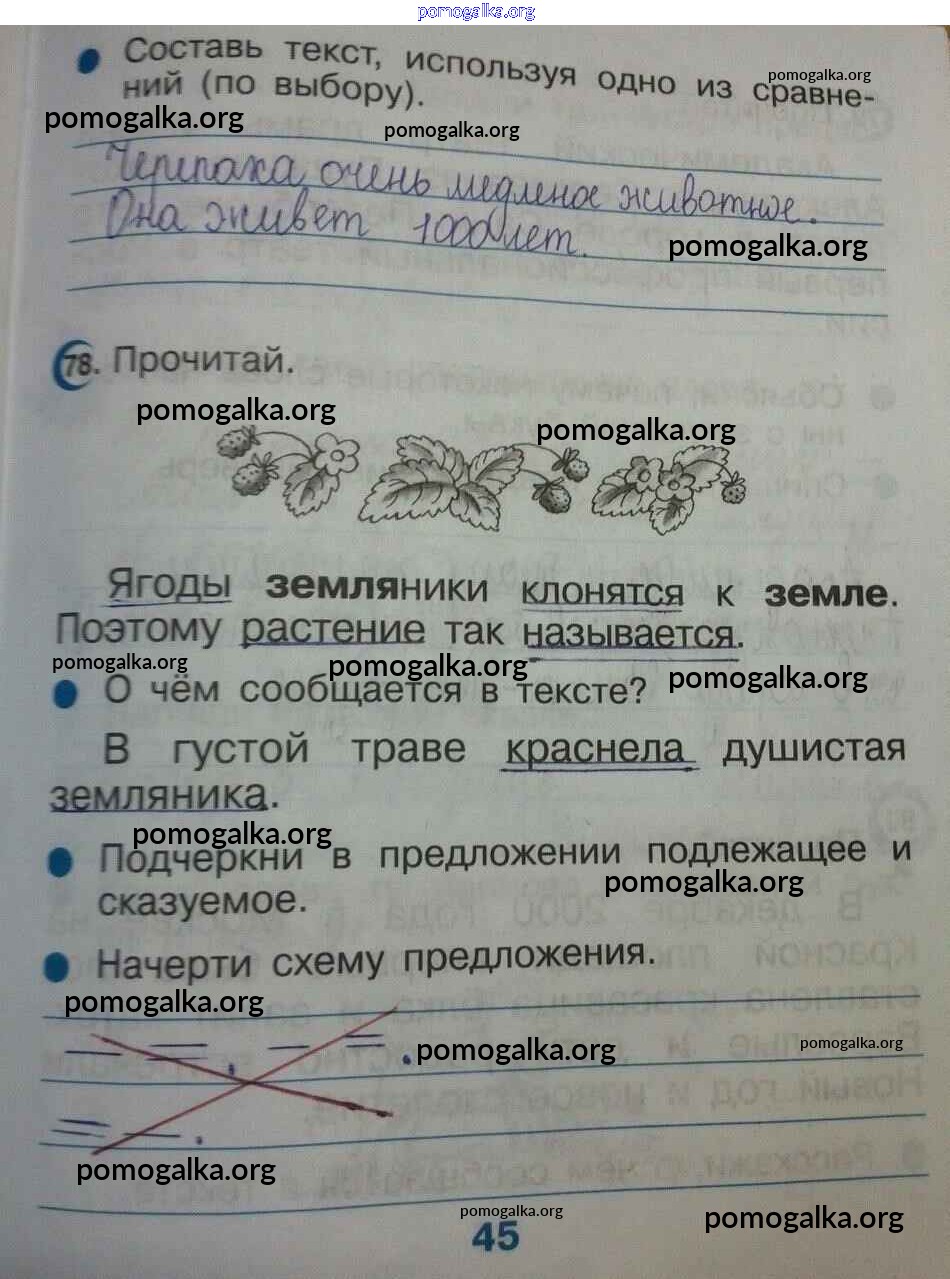 pomogalka.org
Составь текст, используя одно из сравне-
pomogalka.org
ний (по выбору).
pomogalka.org
pomogalka.org
Черепаха очень медленое животное.
Она живет 1000 лет.
pomogalka.org
78. Прочитай.
pomogalka.org
pomogalka.org
Ягоды земляники клонятся к земле.
Поэтому растение так называется.
pomogalka.org
pomogalka.org
pomogalka.org
О чём сообщается в тексте?
В густой траве краснела душистая
земляника.
pomogalka.org
Подчеркни в предложении подлежащее и
pomogalka.org
сказуемое.
Начерти схему предложения.
pomogalka.org
pomogalka.org
pomogalka.org
pomogalka.org
pomogalka.org
pomogalka.org
45